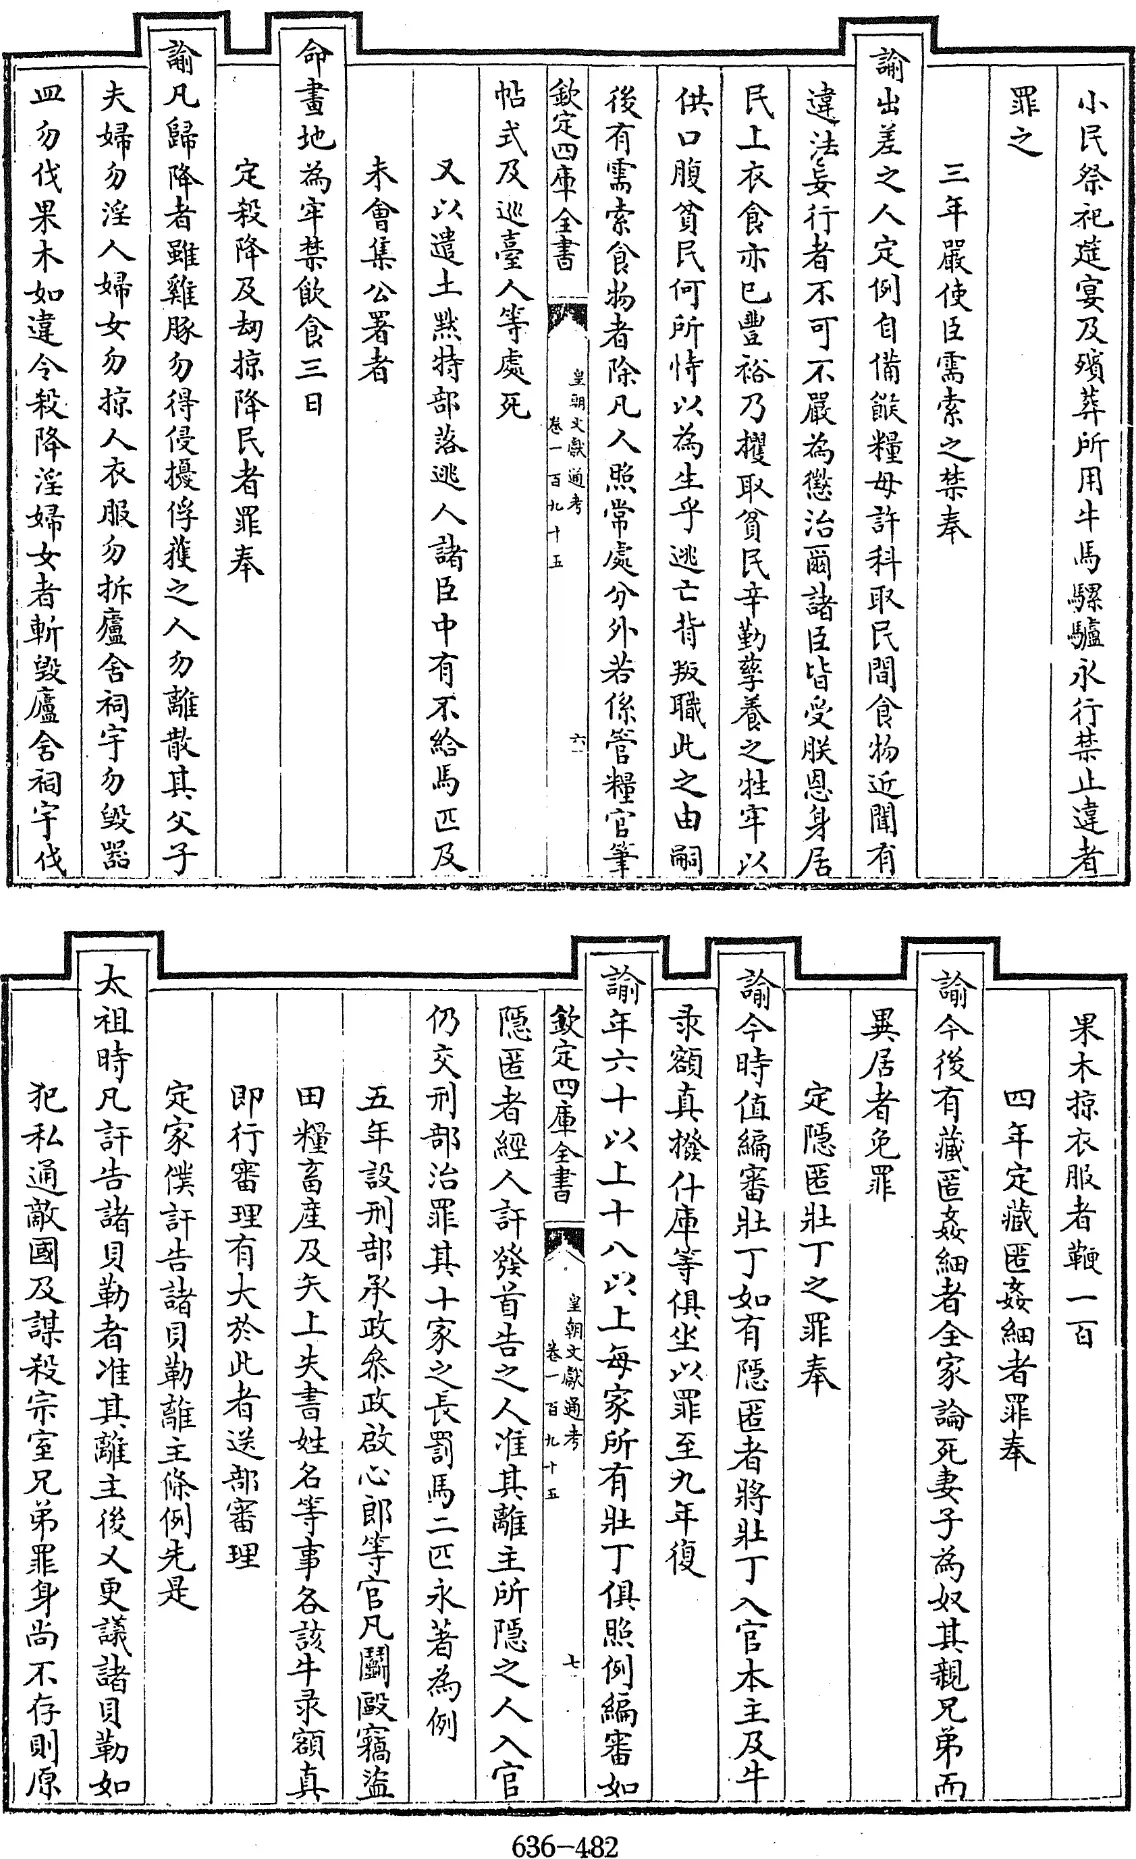 小民祭祀筵宴及殯葬所用牛馬騾驢永行禁止違者
罪之
三年嚴使臣需索之禁奉
諭出差之人定例自備餱糧毋許科取民間食物近聞有
違法妄行者不可不嚴為懲治爾諸臣皆受朕恩身居
民上衣食亦已豐裕乃攫取貧民辛勤孳養之牲牢以
供口腹貧民何所恃以為生乎逃亡背叛職此之由嗣
後有需索食物者除凡人照常處分外若係管糧官筆
欽定四庫全書
皇朝文獻通考
卷一百九十五
六
帖式及巡臺人等處死
又以遣土黙特部落逃人諸臣中有不給馬匹及
未會集公署者
命畫地為牢禁飲食三日
定殺降及刼掠降民者罪奉
諭凡歸降者雖雞豚勿得侵擾俘獲之人勿離散其父子
夫婦勿淫人婦女勿掠人衣服勿拆廬舍祠宇勿毀器
皿勿伐果木如違令殺降淫婦女者斬毀廬舍祠宇伐
果木掠衣服者鞭一百
四年定藏匿姦細者罪奉
諭今後有藏匿姦細者全家論死妻子為奴其親兄弟而
異居者免罪
定隱匿壯丁之罪奉
諭今時值編審壯丁如有隱匿者將壯丁入官本主及牛
录額真撥什庫等俱坐以罪至九年復
諭年六十以上十八以上每家所有壯丁俱照例編審如
欽定四庫全書
皇朝文獻通考
卷一百九十五
七
隱匿者經人訐發首告之人准其離主所隱之人入官
仍交刑部治罪其十家之長罰馬二匹永著為例
五年設刑部承政叅政啟心郎等官凡鬬毆竊盜
田糧畜產及矢上失書姓名等事各該牛录額真
即行審理有大於此者送部審理
定家僕訐告諸貝勒離主條例先是
太祖時凡訐告諸貝勒者准其離主後又更議諸貝勒如
犯私通敵國及謀殺宗室兄弟罪身尚不存則原
636-482